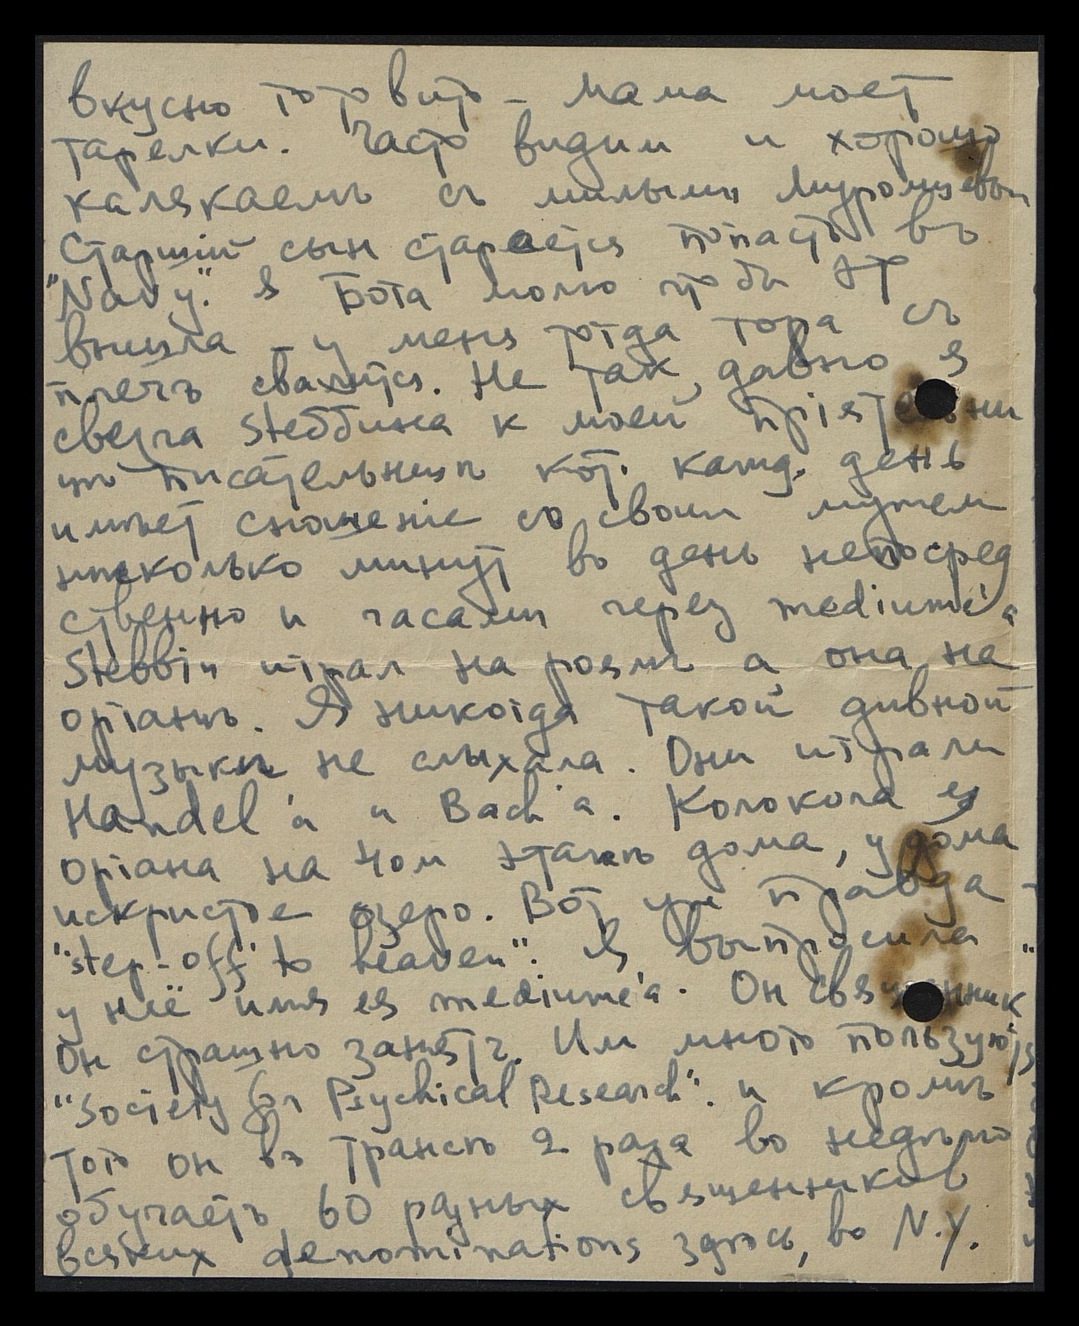 вкусно готовитъ – мама моет
тарелки. Часто видим и хорошо
калякаемъ съ милыми Муромцевыми
Старшій сын старается попасть въ
"Navy". Я Бога молю чтобы это
вышла – у меня тогда гора съ
плечъ свалится. Не так давно я
свезла Steббинa к моей пріятельницѣ
писательницѣ кот. кажд. день
имѣет сношеніе со своим мужем
нѣсколько минут во день непосред
ственно и часами через medium'а
Stebbin играл на роялѣ а она на
органѣ. Я никогда такой дивной
музыки не слыхала. Они играли
Handel'а и Bach'а. Колокола ея
органа на 4ом этажѣ дома, у дома
искристое озеро. Вот уж правда
"step-off to heaven". Я выпросила
у неё имя ея medium'а. Он священник
Он страшно занятъ. Им много пользуются
"Society for Psychical Research". и кромѣ
того он въ трансѣ 2 раза во недѣлю
обучаетъ 60 разных священников
всяких denominations здѣсь, во N.Y.